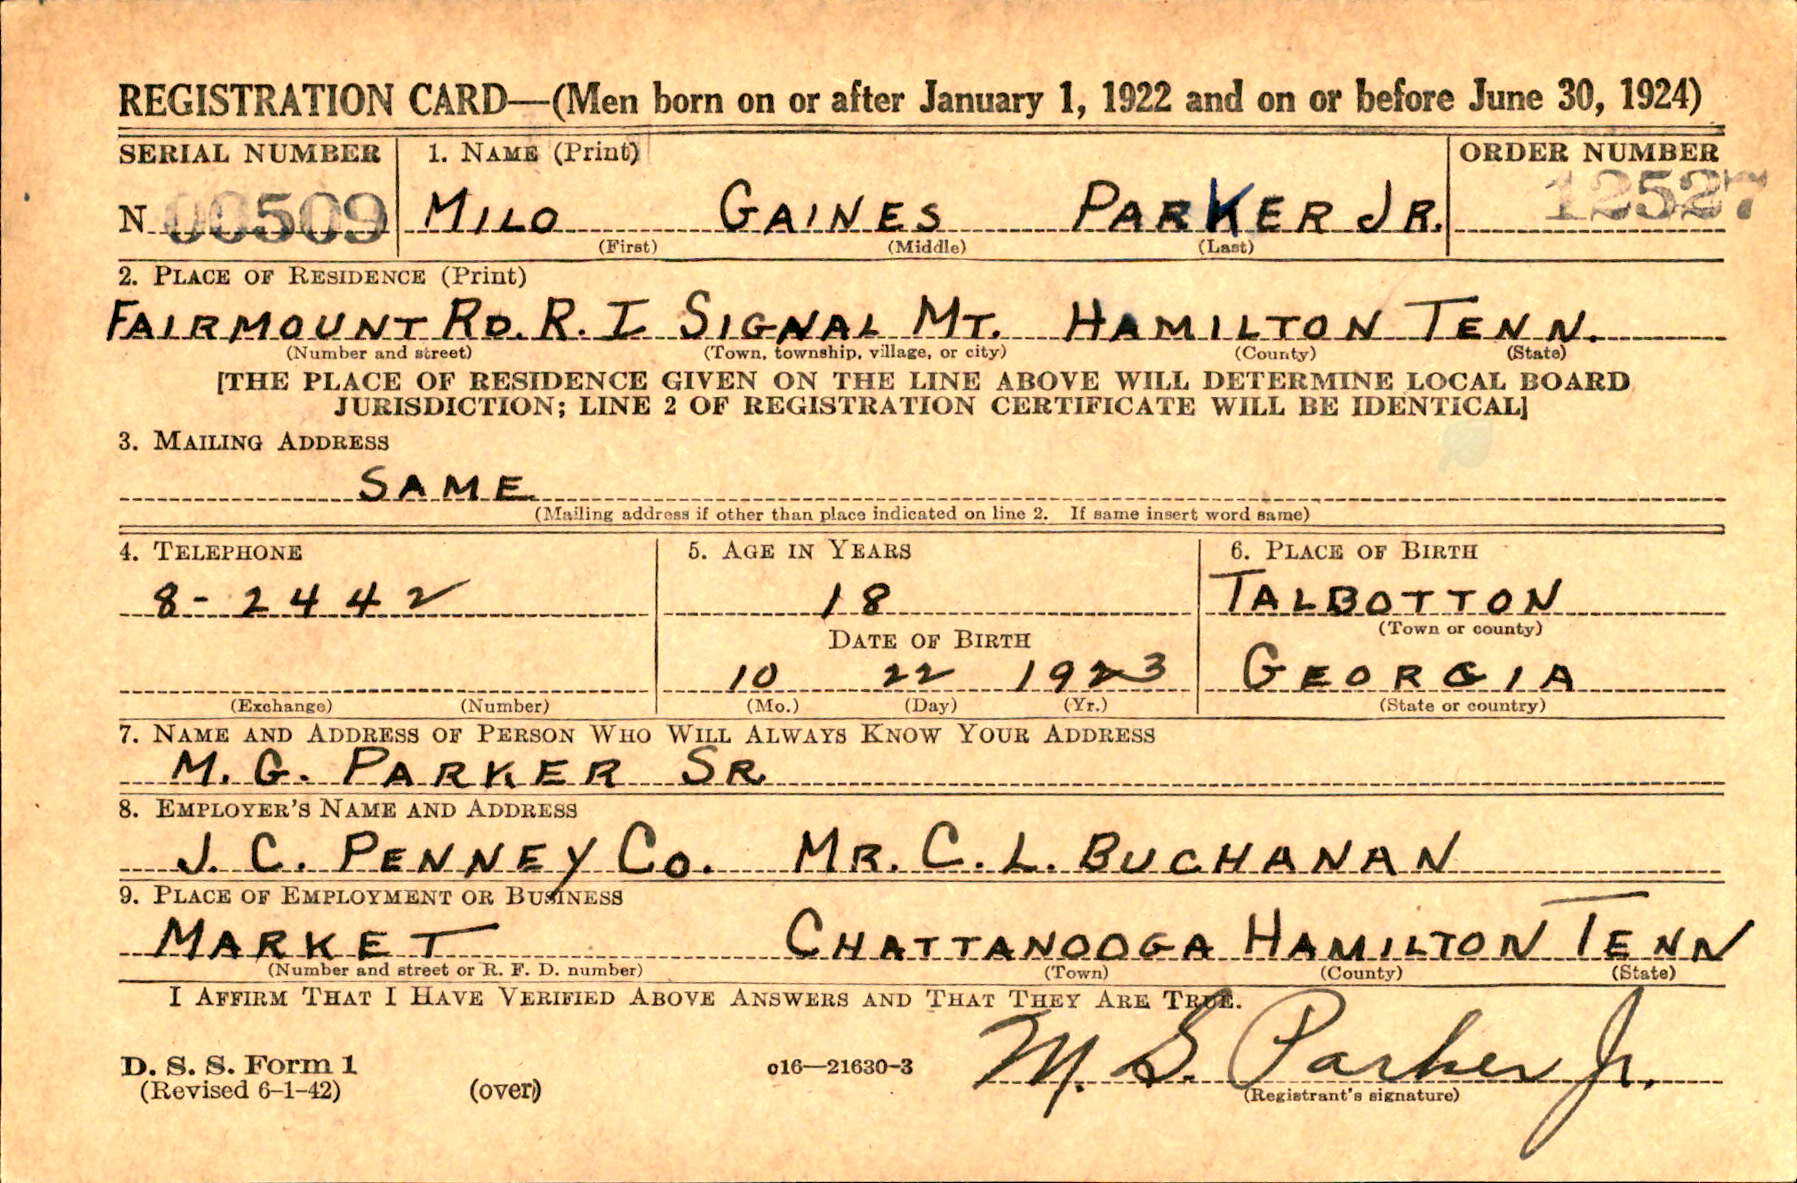 REGISTRATION CARD—(Men born on or after January 1, 1922 and on or before June 30, 1924)
SERIAL NUMBER 1. NAME (Print) ORDER NUMBER
N 00509 MILO GAINES PARKER JR. 12527
(First) (Middle) (Last)
2. PLACE OF RESIDENCE (Print)
FAIRMOUNT RD. R. I SIGNAL MT. HAMILTON TENN.
(Number and street) (Town, township, village, or city) (County) (State)
[THE PLACE OF RESIDENCE GIVEN ON THE LINE ABOVE WILL DETERMINE LOCAL BOARD
JURISDICTION; LINE 2 OF REGISTRATION CERTIFICATE WILL BE IDENTICAL]
3. MAILING ADDRESS
SAME
(Mailing address if other than place indicated on line 2. If same insert word same)
4. TELEPHONE 5. AGE IN YEARS 6. PLACE OF BIRTH
8-2442 18 TALBOTTON
(Town or county)
DATE OF BIRTH
10 22 1923 GEORGIA
(Exchange) (Number) (Mo.) (Day) (Yr.) (State or country)
7. NAME AND ADDRESS OF PERSON WHO WILL ALWAYS KNOW YOUR ADDRESS
M. G. PARKER SR
8. EMPLOYER'S NAME AND ADDRESS
J. C. PENNEY CO. MR. C. L. BUCHANAN
9. PLACE OF EMPLOYMENT OR BUSINESS
MARKET CHATTANOOGA HAMILTON TENN
(Number and street or R. F. D. number) (Town) (County) (State)
I AFFIRM THAT I HAVE VERIFIED ABOVE ANSWERS AND THAT THEY ARE TRUE.
D. S. S. Form 1 c16—21630-3 M. G. Parker Jr.
(Revised 6-1-42) (over) (Registrant's signature)